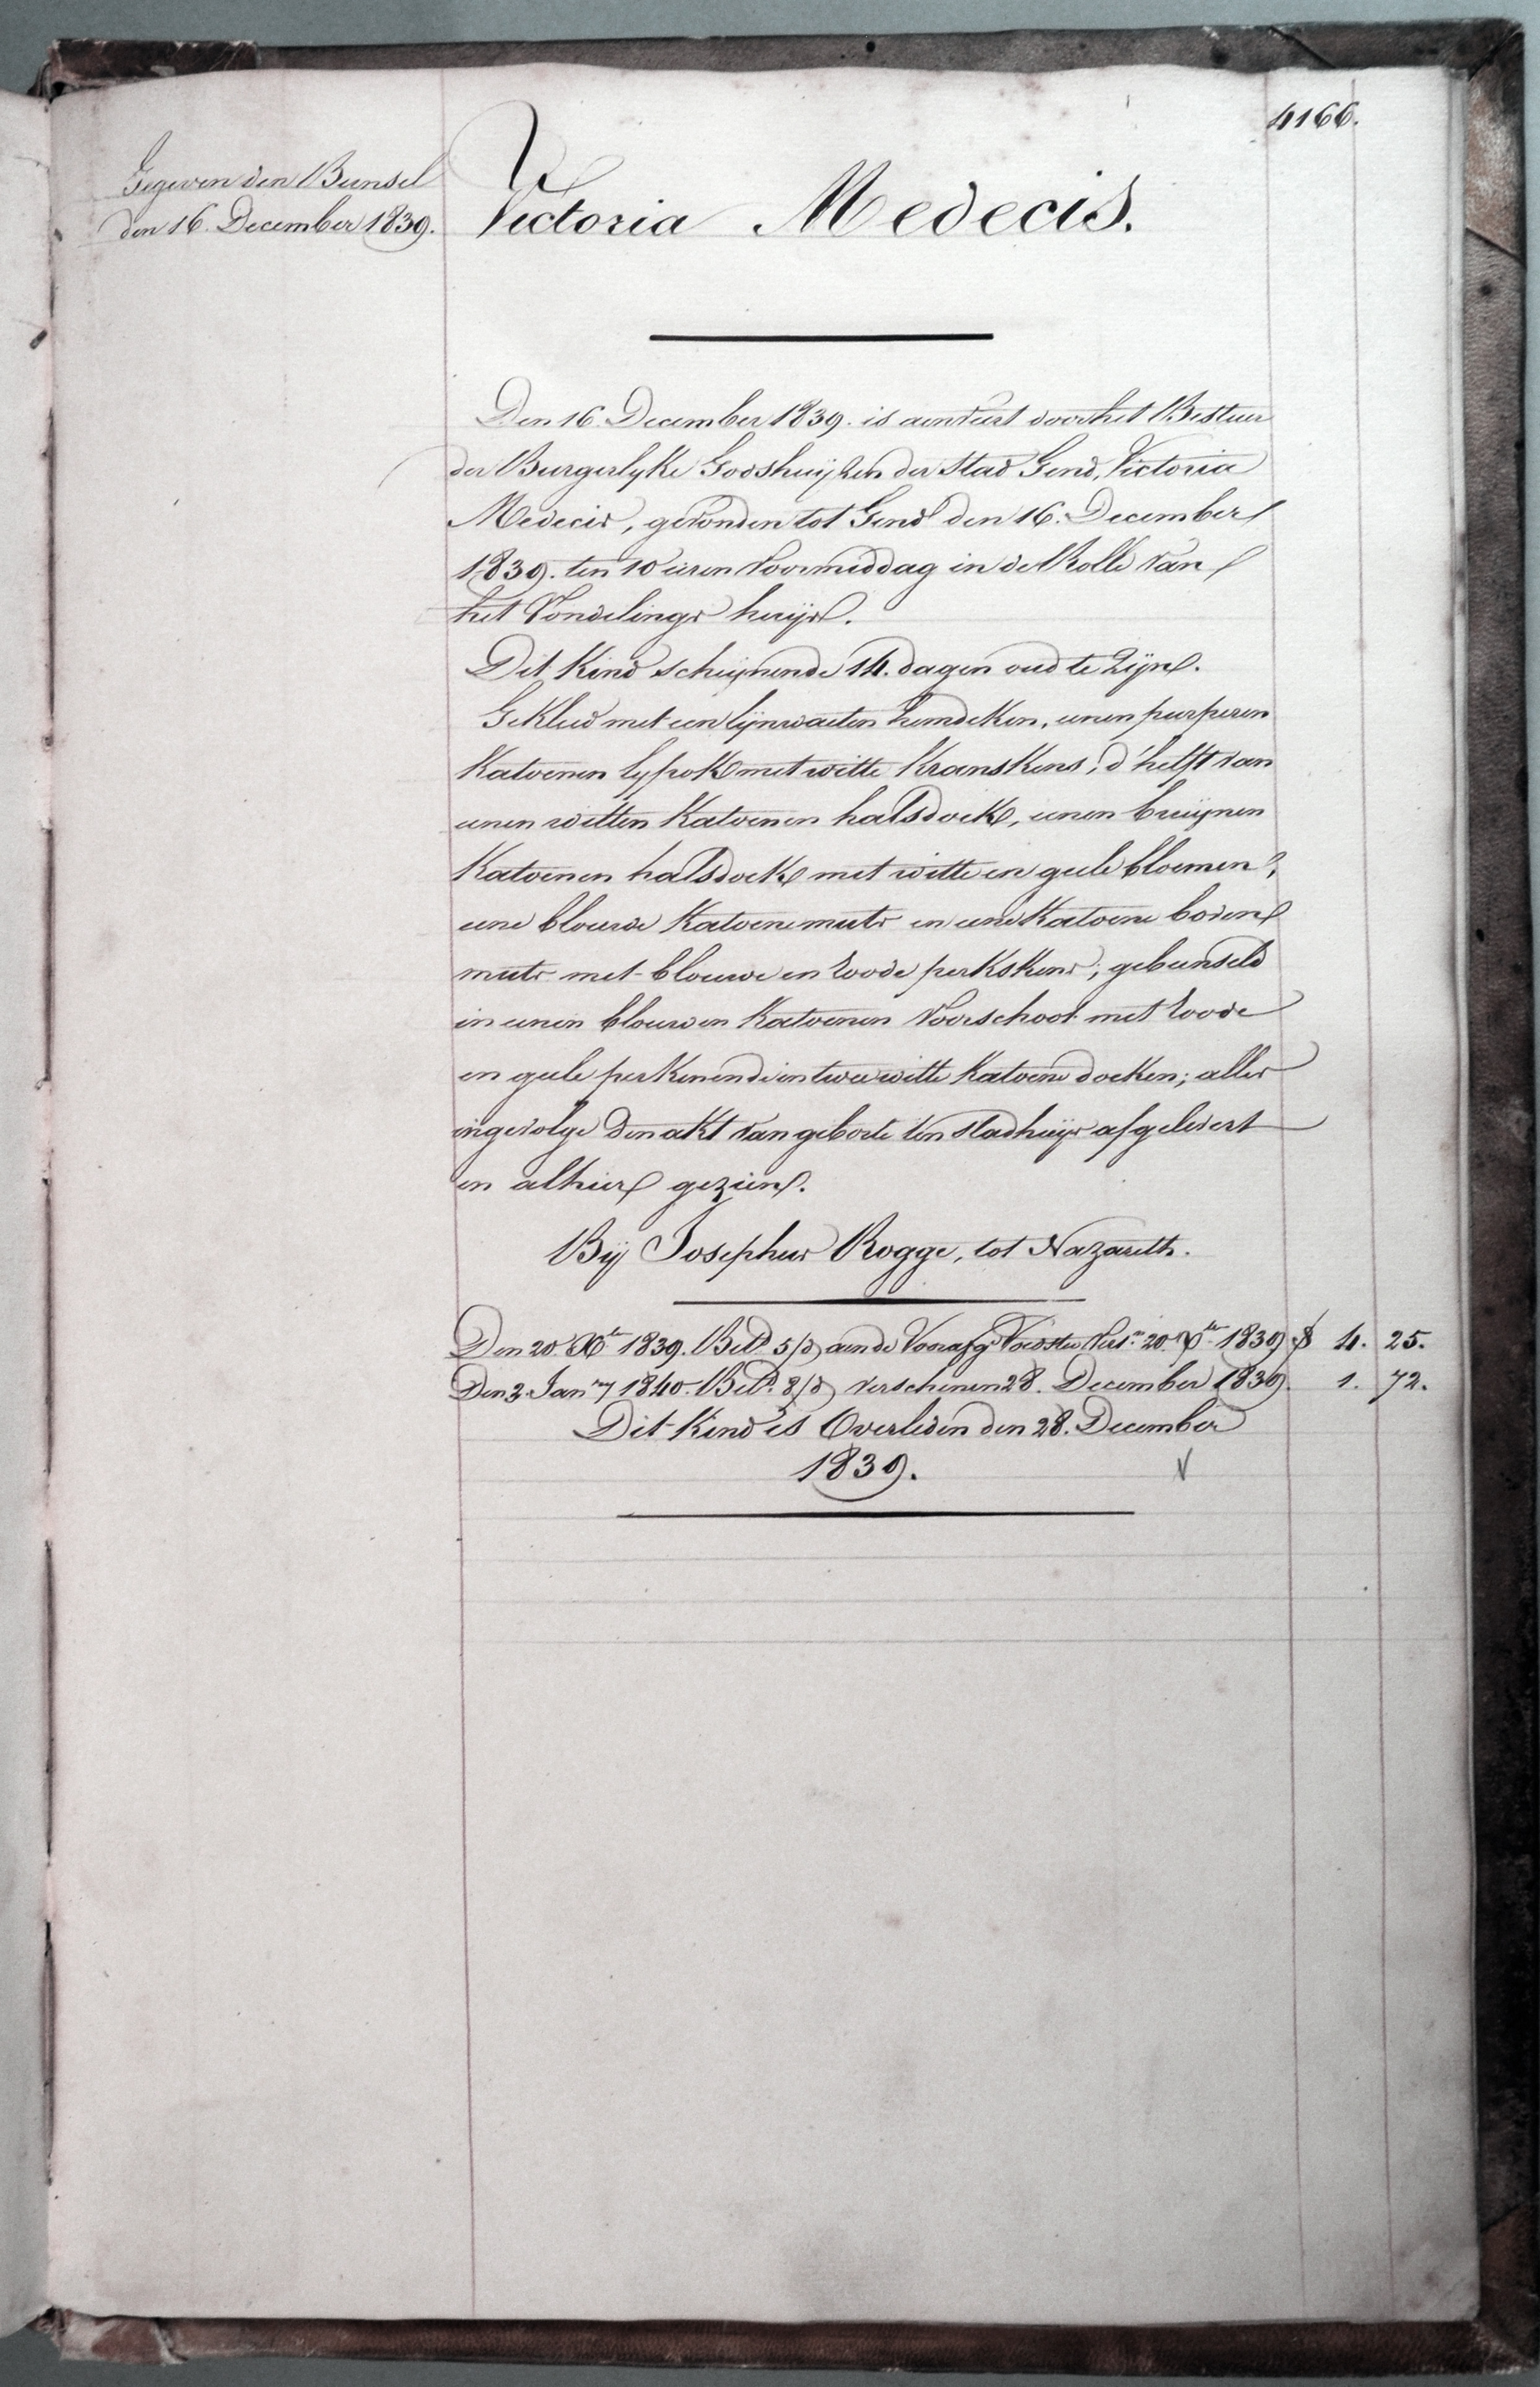 4166.
Gegeven den Bunsel
den 16 December 1839.
Victoria Medecis.
Den 16 December 1839. is aenveert door het Bestuer
der Burgerlyke Godshuyzen der stad Gend, Victoria
Medecis, gevonden tot Gend den 16. December
1839. ten 10 uren Voormiddag in de Rolle van
het Vondelings huijs.
Dit Kind schijnende 14. dagen oud te zijn.
Gekleed met een lijnwaeten hemdeken, eenen purperen
Katoenen lyfrok met witte Kranskens, d'helft van
eenen witten Katoenen halsdoek, eenen bruijnen
Katoenen halsdoek met witte en geele bloemen,
eene blouwe Katoene muts en eene Katoene boven
muts met blouwe en roode perkskens; gebunseld
in eenen blouwen Katoenen Voorschoot met roode
en geele perken ende in twee witte Katoene doeken; alles
ingevolge den akt van geboorte ten stadhuijs afgelevert
en alhier gezien.
Bij Josephus Rogge, tot Nazareth.
Den 20 Xbr 1839. Betd 5/d aen de Voorafge Voedster Versn 20. Xbr 1839 4. 25.
Den 3 Janry 1840. Betd 8/d verschenen 28. December 1839. 1. 72.
Dit Kind is Overleden den 28. December
1839.